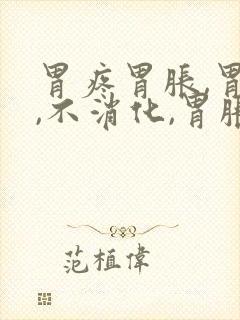 胃疼胃胀,胃
,不消化,胃胀
范植偉